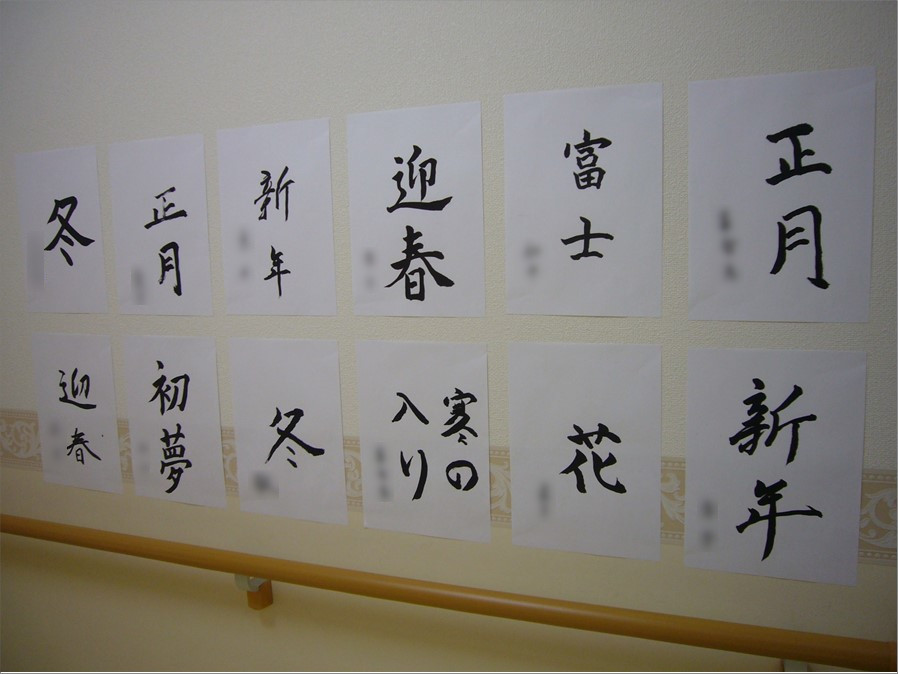 冬
正月
新年
迎春
富士
正月
迎春
初夢
冬
寒の
入り
花
新年